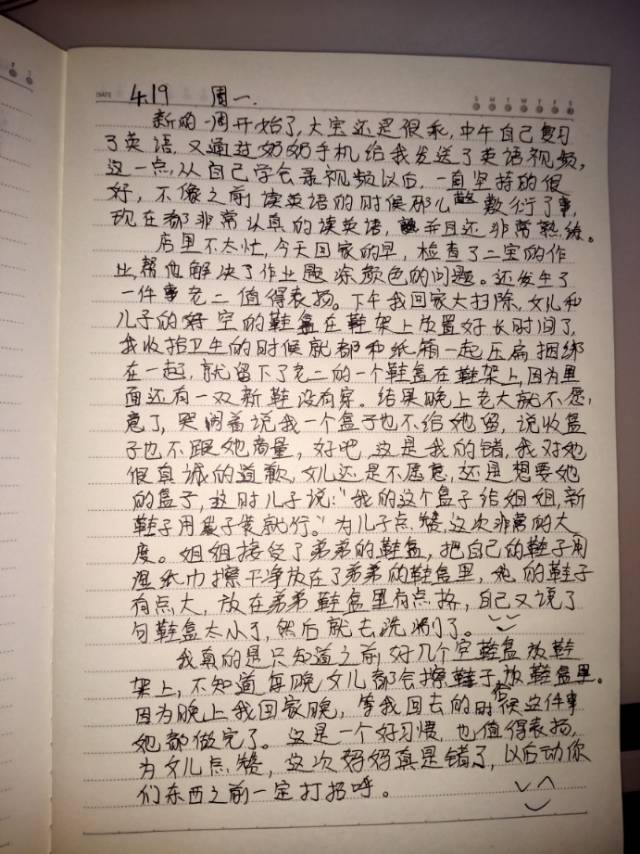 DATE 4.19 周一. S M T W T F S
新的一周开始了,大宝还是很乖,中午自己复习
了英语,又通过奶奶手机给我发送了英语视频,
这一点,从自己学会录视频以后,一直坚持的很
好,不像之前读英语的时候那么敷衍了事,
现在都非常认真的读英语,并且还非常熟练。
店里不太忙,今天回家的早,检查了二宝的作
业,帮他解决了作业题涂颜色的问题。还发生了
一件事老二值得表扬。下午我回家大扫除,女儿和
儿子的好空的鞋盒在鞋架上放置好长时间了,
我收拾卫生的时候就都和纸箱一起压扁捆绑
在一起,就留下了老二的一个鞋盒在鞋架上,因为里
面还有一双新鞋没有穿。结果晚上老大就不愿
意了,哭闹着说我一个盒子也不给她留,说收盒
子也不跟她商量,好吧,这是我的错,我对她
很真诚的道歉,女儿还是不愿意,还是想要她
的盒子,这时儿子说:“我的这个盒子给姐姐,新
鞋子用袋子装就行。”为儿子点赞,这次非常的大
度。姐姐接受了弟弟的鞋盒,把自己的鞋子用
湿纸巾擦干净放在了弟弟的鞋盒里,她的鞋子
有点大,放在弟弟鞋盒里有点挤,自己又说了
句鞋盒太小了,然后就去洗涮了。
我真的是只知道之前好几个空鞋盒放鞋
架上,不知道每晚女儿都会擦鞋子放鞋盒里。
因为晚上我回家晚,等我回去的时候这件事
她都做完了。这是一个好习惯,也值得表扬,
为女儿点赞,这次妈妈真是错了,以后动你
们东西之前一定打招呼。